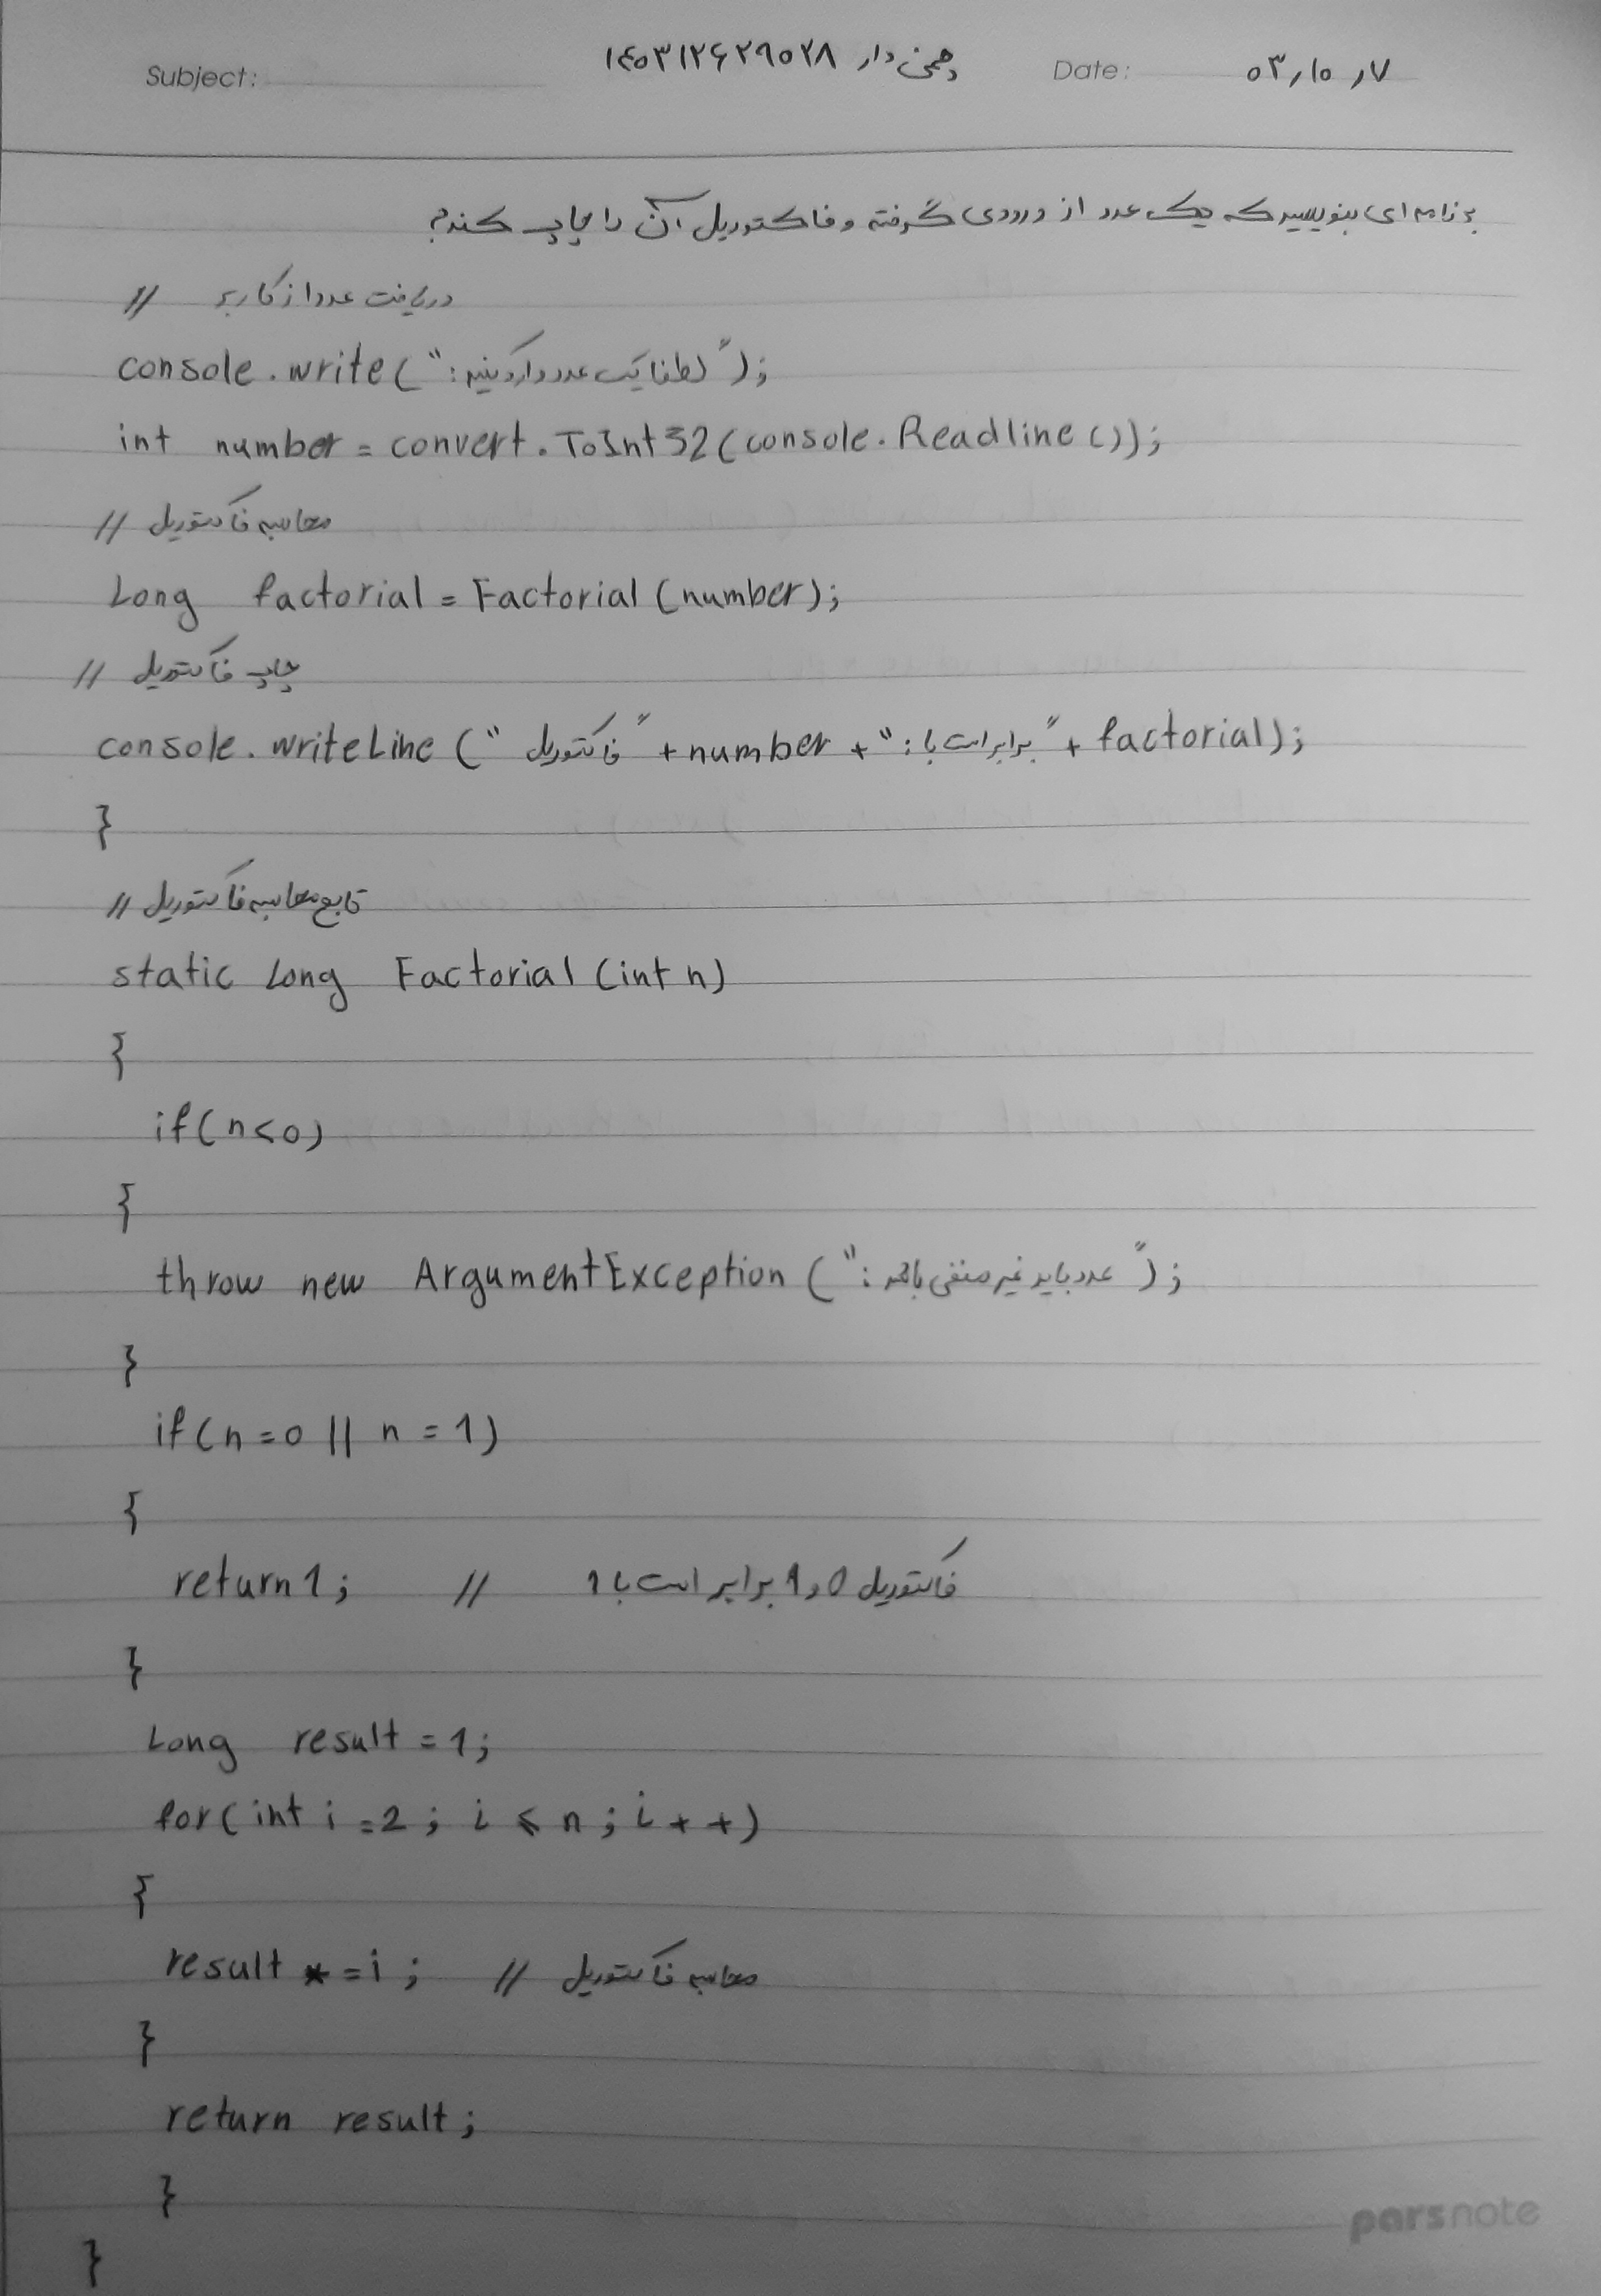 Subject: دار ۱۴۰۳۱۲۶۲۹۰۲۸ Date: ۰۳,۱۰,۱۷
برنامه ای بنویسید که یک عدد از ورودی گرفته و فاکتوریل آن را چاپ کند؟
// دریافت عدد از کاربر
console.write("لطفا یک عدد وارد کنید:");
int number = convert.ToInt32(console.Readline());
// محاسبه فاکتوریل
Long factorial = Factorial (number);
// چاپ فاکتوریل
console.writeLine ("فاکتوریل" + number + "برابر است با:" + factorial);
}
// تابع محاسبه فاکتوریل
static Long Factorial (int n)
{
if(n<0)
{
throw new ArgumentException ("عدد باید غیر منفی باشد:");
}
if(n=0 || n=1)
{
return 1; // فاکتوریل 0 و 1 برابر است با 1
}
Long result = 1;
for(int i=2; i ≤ n; i++)
{
result *=i; // محاسبه فاکتوریل
}
return result;
}
}
parsnote